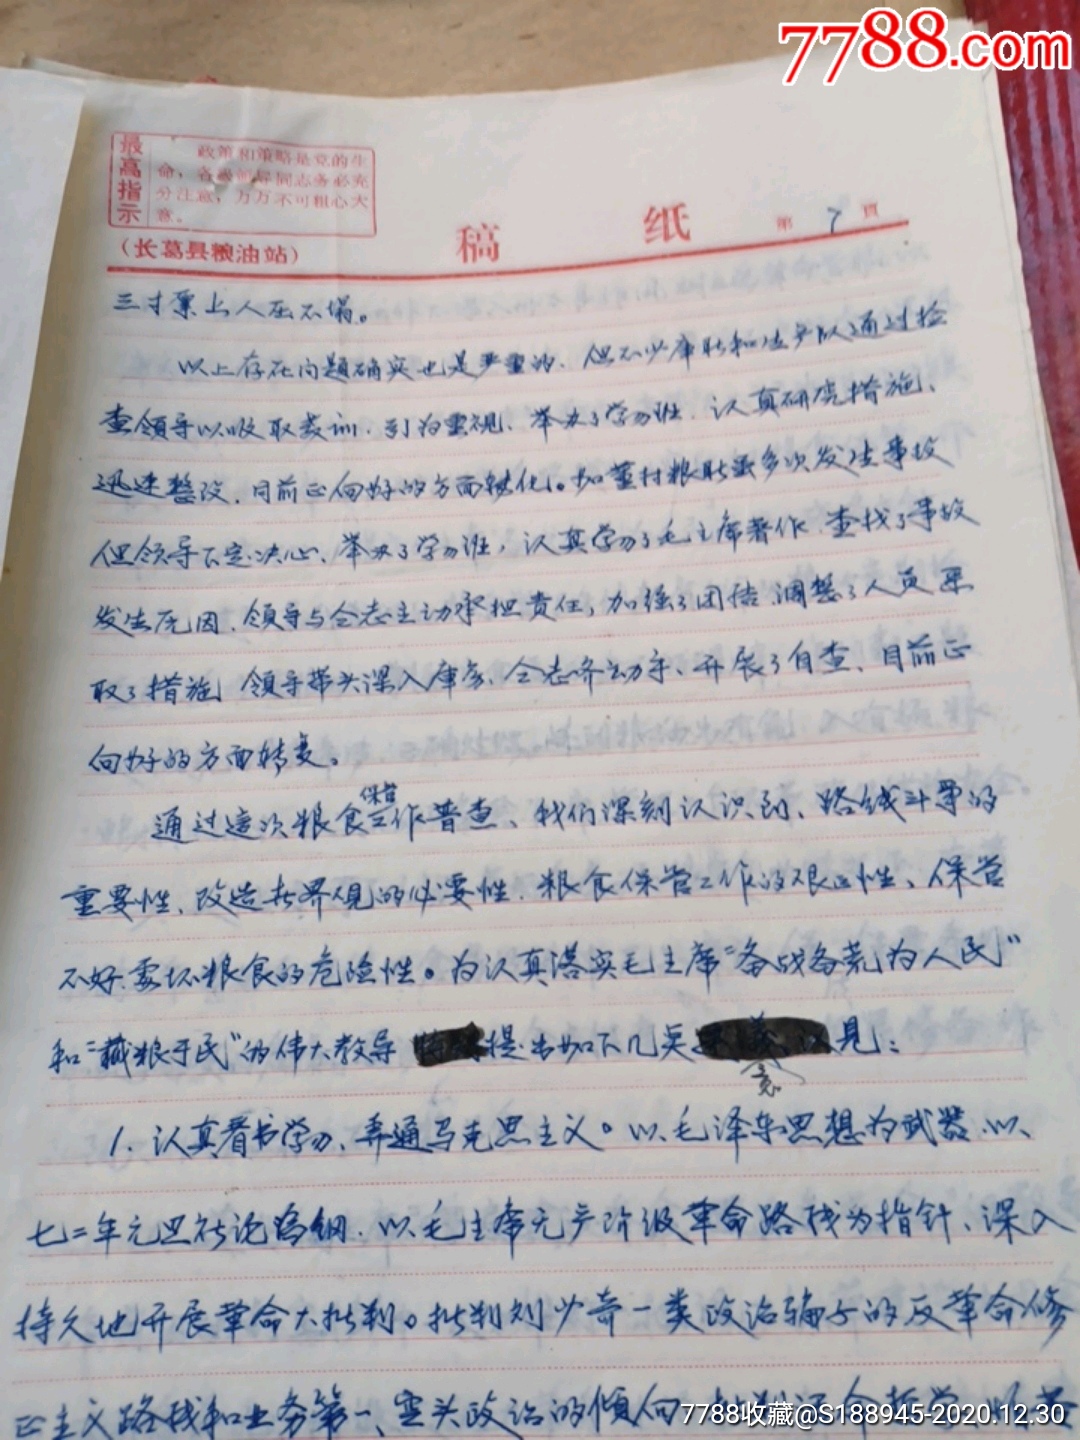 7788.com
最高指示
政策和策略是党的生
命,各级领导同志务必充
分注意,万万不可粗心大
意。
(长葛县粮油站)
稿 纸
第 7 頁
以上存在问题确实也是严重的、但不少库耿和生产队通过检
查领导以吸取教训、引为重视、举办了学习班、认真研究措施、
迅速整改、目前正向好的方面转化。如董村粮所虽多次发生事故
但领导下定决心、举办了学习班,认真学习了毛主席著作、查找了事故
发生原因、领导与仝志主动承担责任,加强了团结、调整了人员采
取了措施、领导带头深入库房、仝志齐动手、开展了自查、目前正
向好的方面转变。
通过这次粮食保管工作普查、我们深刻认识到、路线斗争的
重要性、改造世界观的必要性、粮食保管工作的艰巨性、保管
不好 坏粮食的危险性。为认真落实毛主席"备战备荒为人民"
和"藏粮于民"的伟大教导 提出如下几点 意见:
1. 认真看书学习、弄通马克思主义。以毛泽东思想为武器、以
七二年元旦社论为纲、以毛主席无产阶级革命路线为指针、深入
持久地开展革命大批判。批判刘少奇一类政治骗子的反革命修
正主义路线和业务第一、空头政治的倾向
7788收藏@S188945-2020.12.30